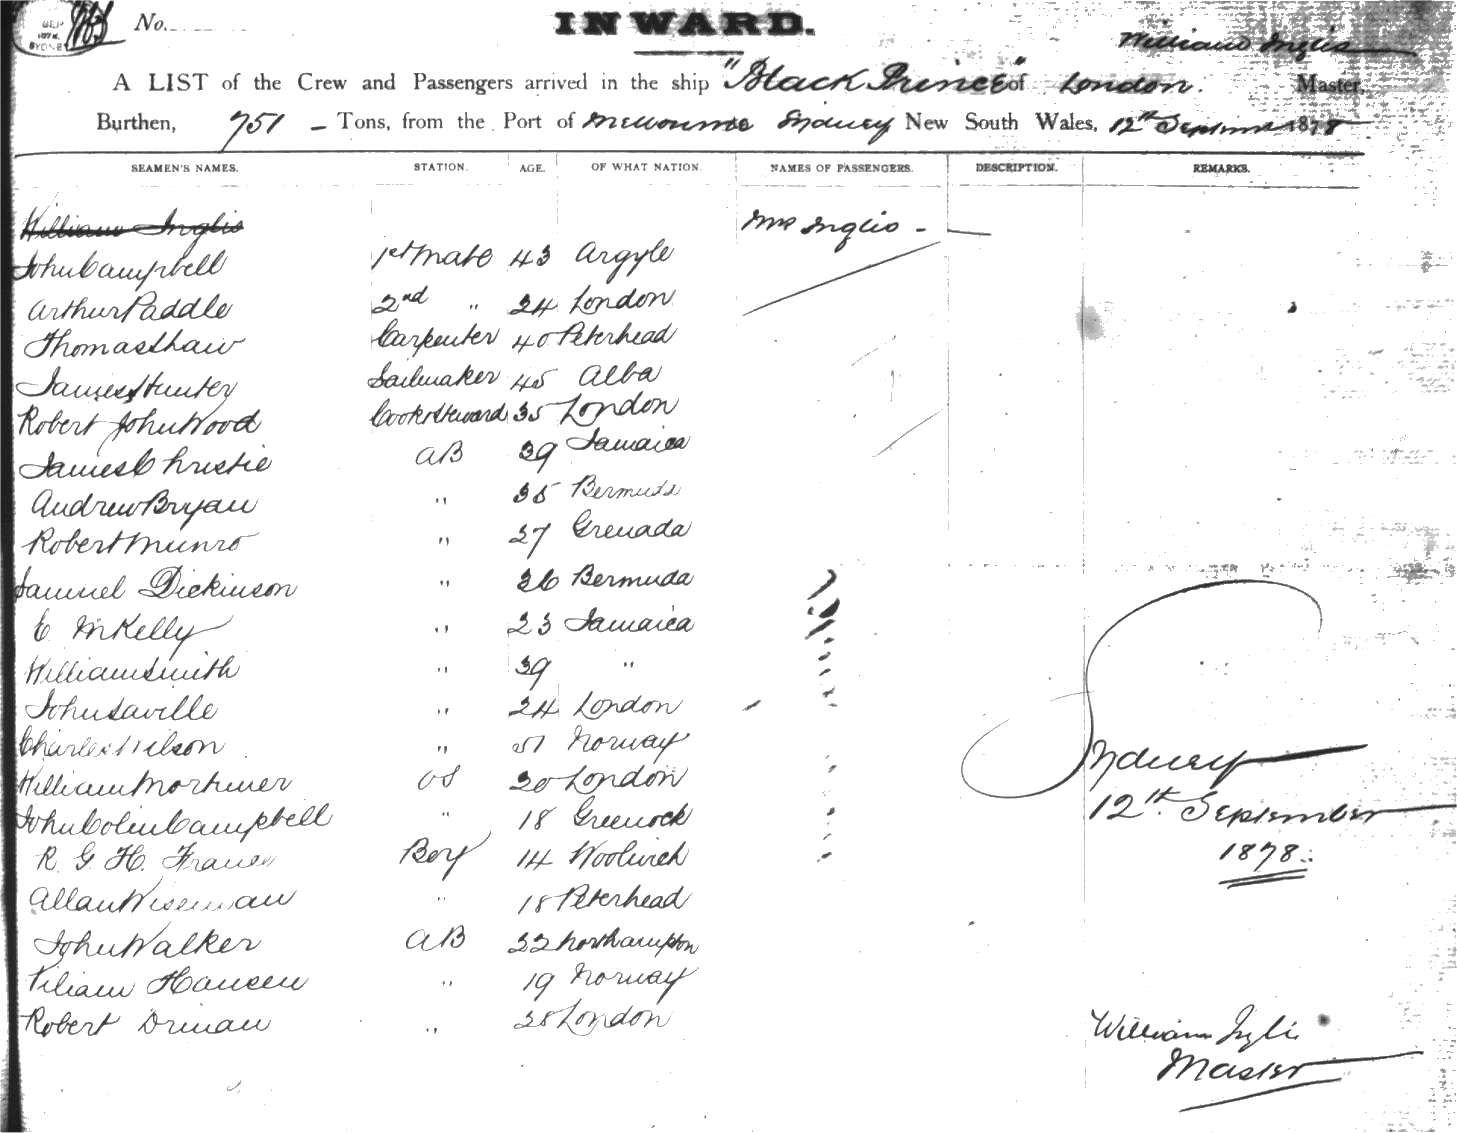 SEP
1878
SYDNEY
No.
INWARD.
William Inglis
A LIST of the Crew and Passengers arrived in the ship "Black Prince" of London. Master,
Burthen, 751 - Tons, from the Port of Melbourne Sydney New South Wales, 12th September 1878
SEAMEN'S NAMES. STATION. AGE. OF WHAT NATION. NAMES OF PASSENGERS. DESCRIPTION. REMARKS.
William Inglis Mrs Inglis -
John Campbell 1st Mate 43 Argyle
Arthur Paddle 2nd " 24 London
Thomas Shaw Carpenter 40 Peterhead
James Hunter Sailmaker 45 Alba
Robert John Wood Cook & Steward 35 London
James Christie AB 39 Jamaica
Andrew Bryan " 35 Bermuda
Robert Munro " 27 Grenada
Samuel Dickinson " 26 Bermuda
E McKelly " 23 Jamaica
William Smith " 39 "
John Saville " 24 London
Charles Wilson " 51 Norway
William Mortimer OS 20 London
John Colin Campbell " 18 Greenock
R. G. H. Boy 14 Woolwich
Allan Wiseman " 18 Peterhead
John Walker AB 22 Northampton
Hansen " 19 Norway
Robert " 28 London
Sydney
12th. September
1878.
William Inglis
Master